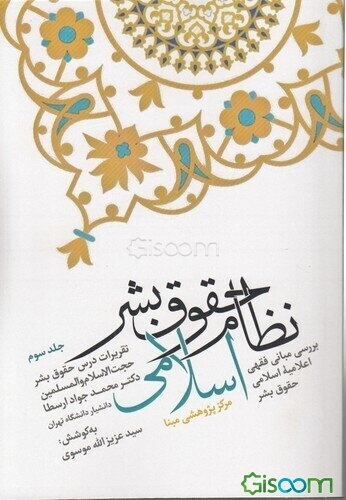 Gisoom
نظام حقوق بشر
اسلامی
جلد سوم
تقریرات درس حقوق بشر
حجت‌الاسلام‌والمسلمین
دکتر محمد جواد ارسطا
دانشیار دانشگاه تهران
به‌کوشش:
سید عزیزالله موسوی
بررسی مبانی فقهی
اعلامیهٔ اسلامی
حقوق بشر
مرکز پژوهشی مبنا
Gisoom
.com